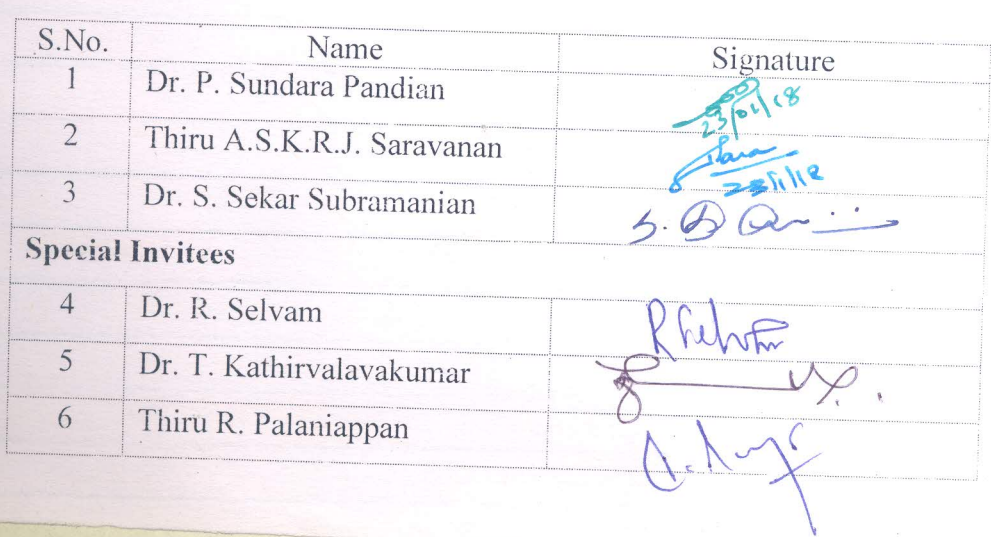 S.No. Name Signature
1 Dr. P. Sundara Pandian
23/01/18
2 Thiru A.S.K.R.J. Saravanan
3 Dr. S. Sekar Subramanian
Special Invitees
4 Dr. R. Selvam
5 Dr. T. Kathirvalavakumar
6 Thiru R. Palaniappan